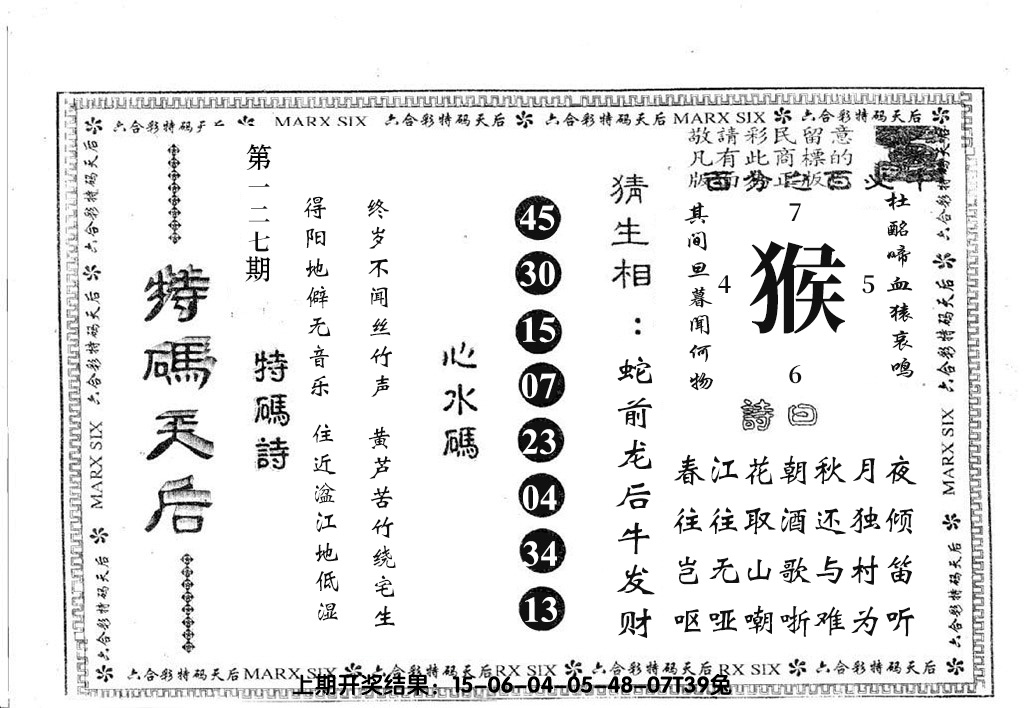 六合彩特码天后 MARX SIX 六合彩特码天后 六合彩特码天后 MARX SIX 六合彩特码天后
敬請彩民留意
凡有此商標的
版面為正版
杜酩啼血猿哀鸣
其间旦暮闻何物
7
4 猴 5
6
詩曰
春江花朝秋月夜
往往取酒还独倾
岂无山歌与村笛
呕哑嘲哳难为听
猜生相：蛇前龙后牛发财
45
30
15
07
23
04
34
13
心水碼
终岁不闻丝竹声 黄芦苦竹绕宅生
得阳地僻无音乐 住近湓江地低湿
第一二七期
特碼詩
特碼天后
六合彩特码天后 六合彩特码天后 MARX SIX 六合彩特码天后
六合彩特码天后 六合彩特码天后 MARX SIX 六合彩特码天后
六合彩特码天后 MARX SIX 六合彩特码天后 RX SIX 六合彩特码天后 RX SIX 六合彩特码天后
上期开奖结果：15-06-04-05-48-07T39兔